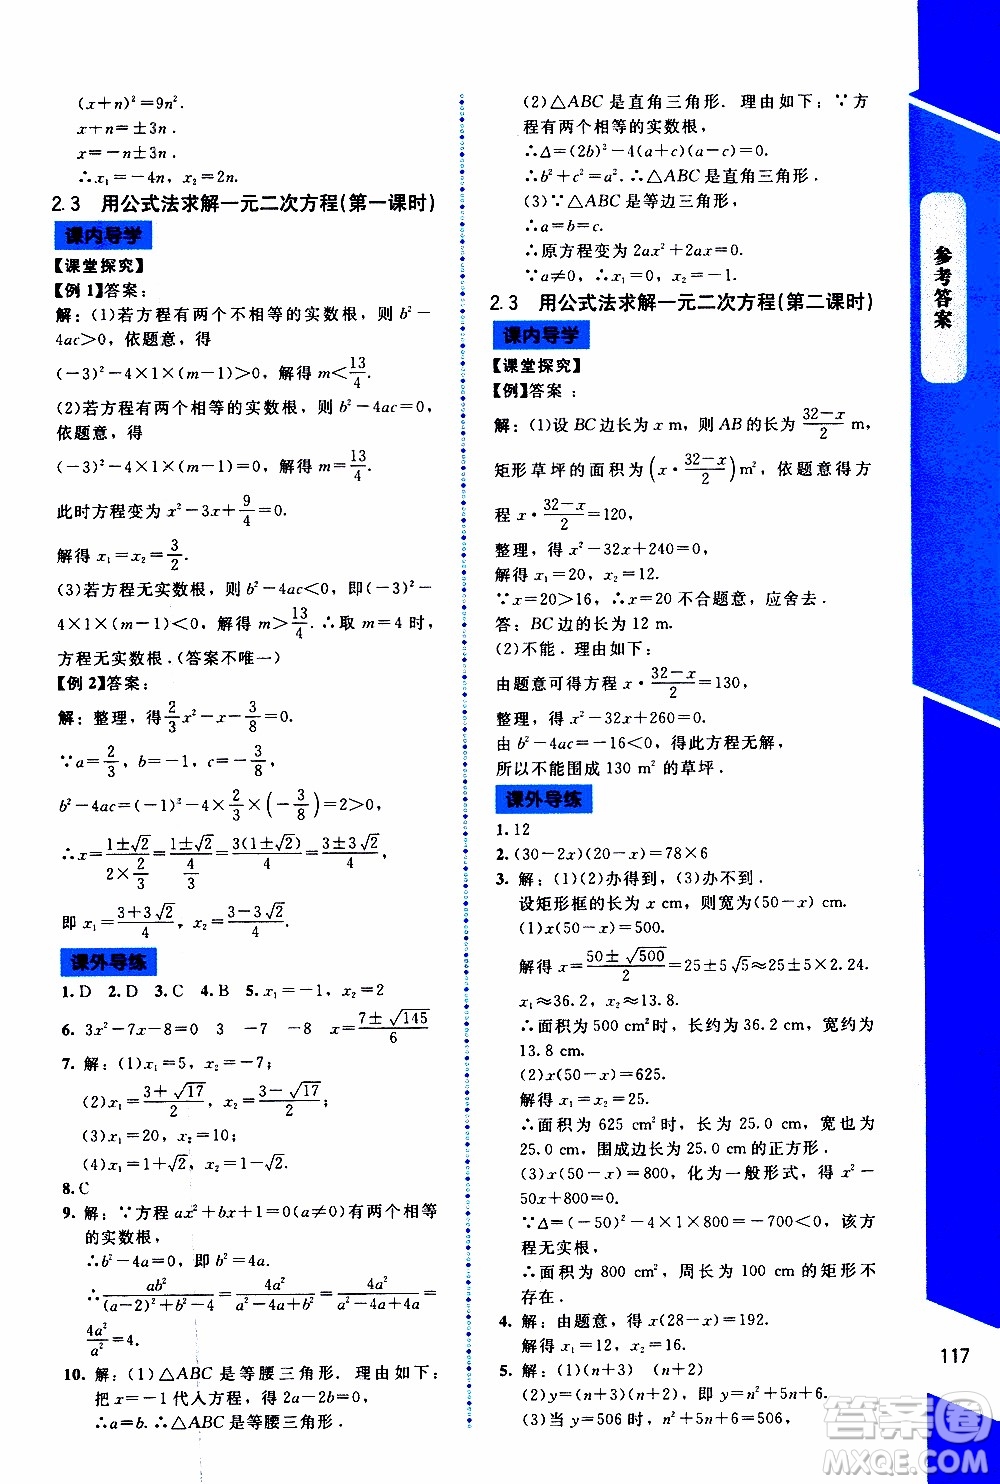 (x+n)²=9n².
x+n=±3n.
x=-n±3n.
∴x₁=-4n, x₂=2n.
2.3 用公式法求解一元二次方程(第一课时)
课内导学
【课堂探究】
【例1】答案:
解:(1)若方程有两个不相等的实数根,则 b²-
4ac>0,依题意,得
(-3)²-4×1×(m-1)>0,解得 m<13/4.
(2)若方程有两个相等的实数根,则 b²-4ac=0,
依题意,得
(-3)²-4×1×(m-1)=0,解得 m=13/4.
此时方程变为 x²-3x+9/4=0.
解得 x₁=x₂=3/2.
(3)若方程无实数根,则 b²-4ac<0,即(-3)²-
4×1×(m-1)<0,解得 m>13/4.∴取 m=4 时,
方程无实数根.(答案不唯一)
【例2】答案:
解:整理,得 2/3x²-x-3/8=0.
∵a=2/3,b=-1,c=-3/8,
b²-4ac=(-1)²-4×2/3×(-3/8)=2>0,
∴x=(1±√2)/(2×2/3)=(1±√2)/(4/3)=3(1±√2)/4=(3±3√2)/4,
即 x₁=(3+3√2)/4, x₂=(3-3√2)/4.
课外导练
1.D 2.D 3.C 4.B 5.x₁=-1, x₂=2
6. 3x²-7x-8=0 3 -7 -8 x=(7±√145)/6
7. 解:(1)x₁=5, x₂=-7;
(2)x₁=(3+√17)/2, x₂=(3-√17)/2;
(3)x₁=20, x₂=10;
(4)x₁=1+√2, x₂=1-√2.
8.C
9. 解:∵方程 ax²+bx+1=0(a≠0)有两个相等
的实数根,
∴b²-4a=0,即 b²=4a.
∴ab²/((a-2)²+b²-4)=4a²/(a²-4a+4a)=
4a²/a²=4.
10. 解:(1)△ABC 是等腰三角形.理由如下:
把 x=-1 代入方程,得 2a-2b=0,
∴a=b.∴△ABC 是等腰三角形.
(2)△ABC 是直角三角形.理由如下:∵方
程有两个相等的实数根,
∴Δ=(2b)²-4(a+c)(a-c)=0.
∴b²+c²=a².∴△ABC 是直角三角形.
(3)∵△ABC 是等边三角形,
∴a=b=c.
∴原方程变为 2ax²+2ax=0.
∵a≠0,∴x₁=0, x₂=-1.
2.3 用公式法求解一元二次方程(第二课时)
课内导学
【课堂探究】
【例】答案:
解:(1)设 BC 边长为 x m,则 AB 的长为(32-x)/2 m,
矩形草坪的面积为(x·(32-x)/2)m²,依题意得方
程 x·(32-x)/2=120,
整理,得 x²-32x+240=0.
解得 x₁=20, x₂=12.
∵x=20>16,∴x=20 不合题意,应舍去.
答:BC 边的长为 12 m.
(2)不能.理由如下:
由题意可得方程 x·(32-x)/2=130,
整理,得 x²-32x+260=0.
由 b²-4ac=-16<0,得此方程无解,
所以不能围成 130 m² 的草坪.
课外导练
1.12
2.(30-2x)(20-x)=78×6
3. 解:(1)(2)办得到,(3)办不到.
设矩形框的长为 x cm,则宽为(50-x) cm.
(1)x(50-x)=500.
解得 x=(50±√500)/2=25±5√5≈25±5×2.24.
x₁≈36.2, x₂≈13.8.
∴面积为 500 cm² 时,长约为 36.2 cm,宽约为
13.8 cm.
(2)x(50-x)=625.
解得 x₁=x₂=25.
∴面积为 625 cm² 时,长为 25.0 cm,宽为
25.0 cm,围成边长为 25.0 cm 的正方形.
(3)x(50-x)=800,化为一般形式,得 x²-
50x+800=0.
∵Δ=(-50)²-4×1×800=-700<0,该方
程无实根.
∴面积为 800 cm²,周长为 100 cm 的矩形不
存在.
4. 解:由题意,得 x(28-x)=192.
解得 x₁=12, x₂=16.
5. 解:(1)(n+3) (n+2)
(2)y=(n+3)(n+2),即 y=n²+5n+6.
(3)当 y=506 时,n²+5n+6=506,
参考答案
117
答案圈
MXQE.COM